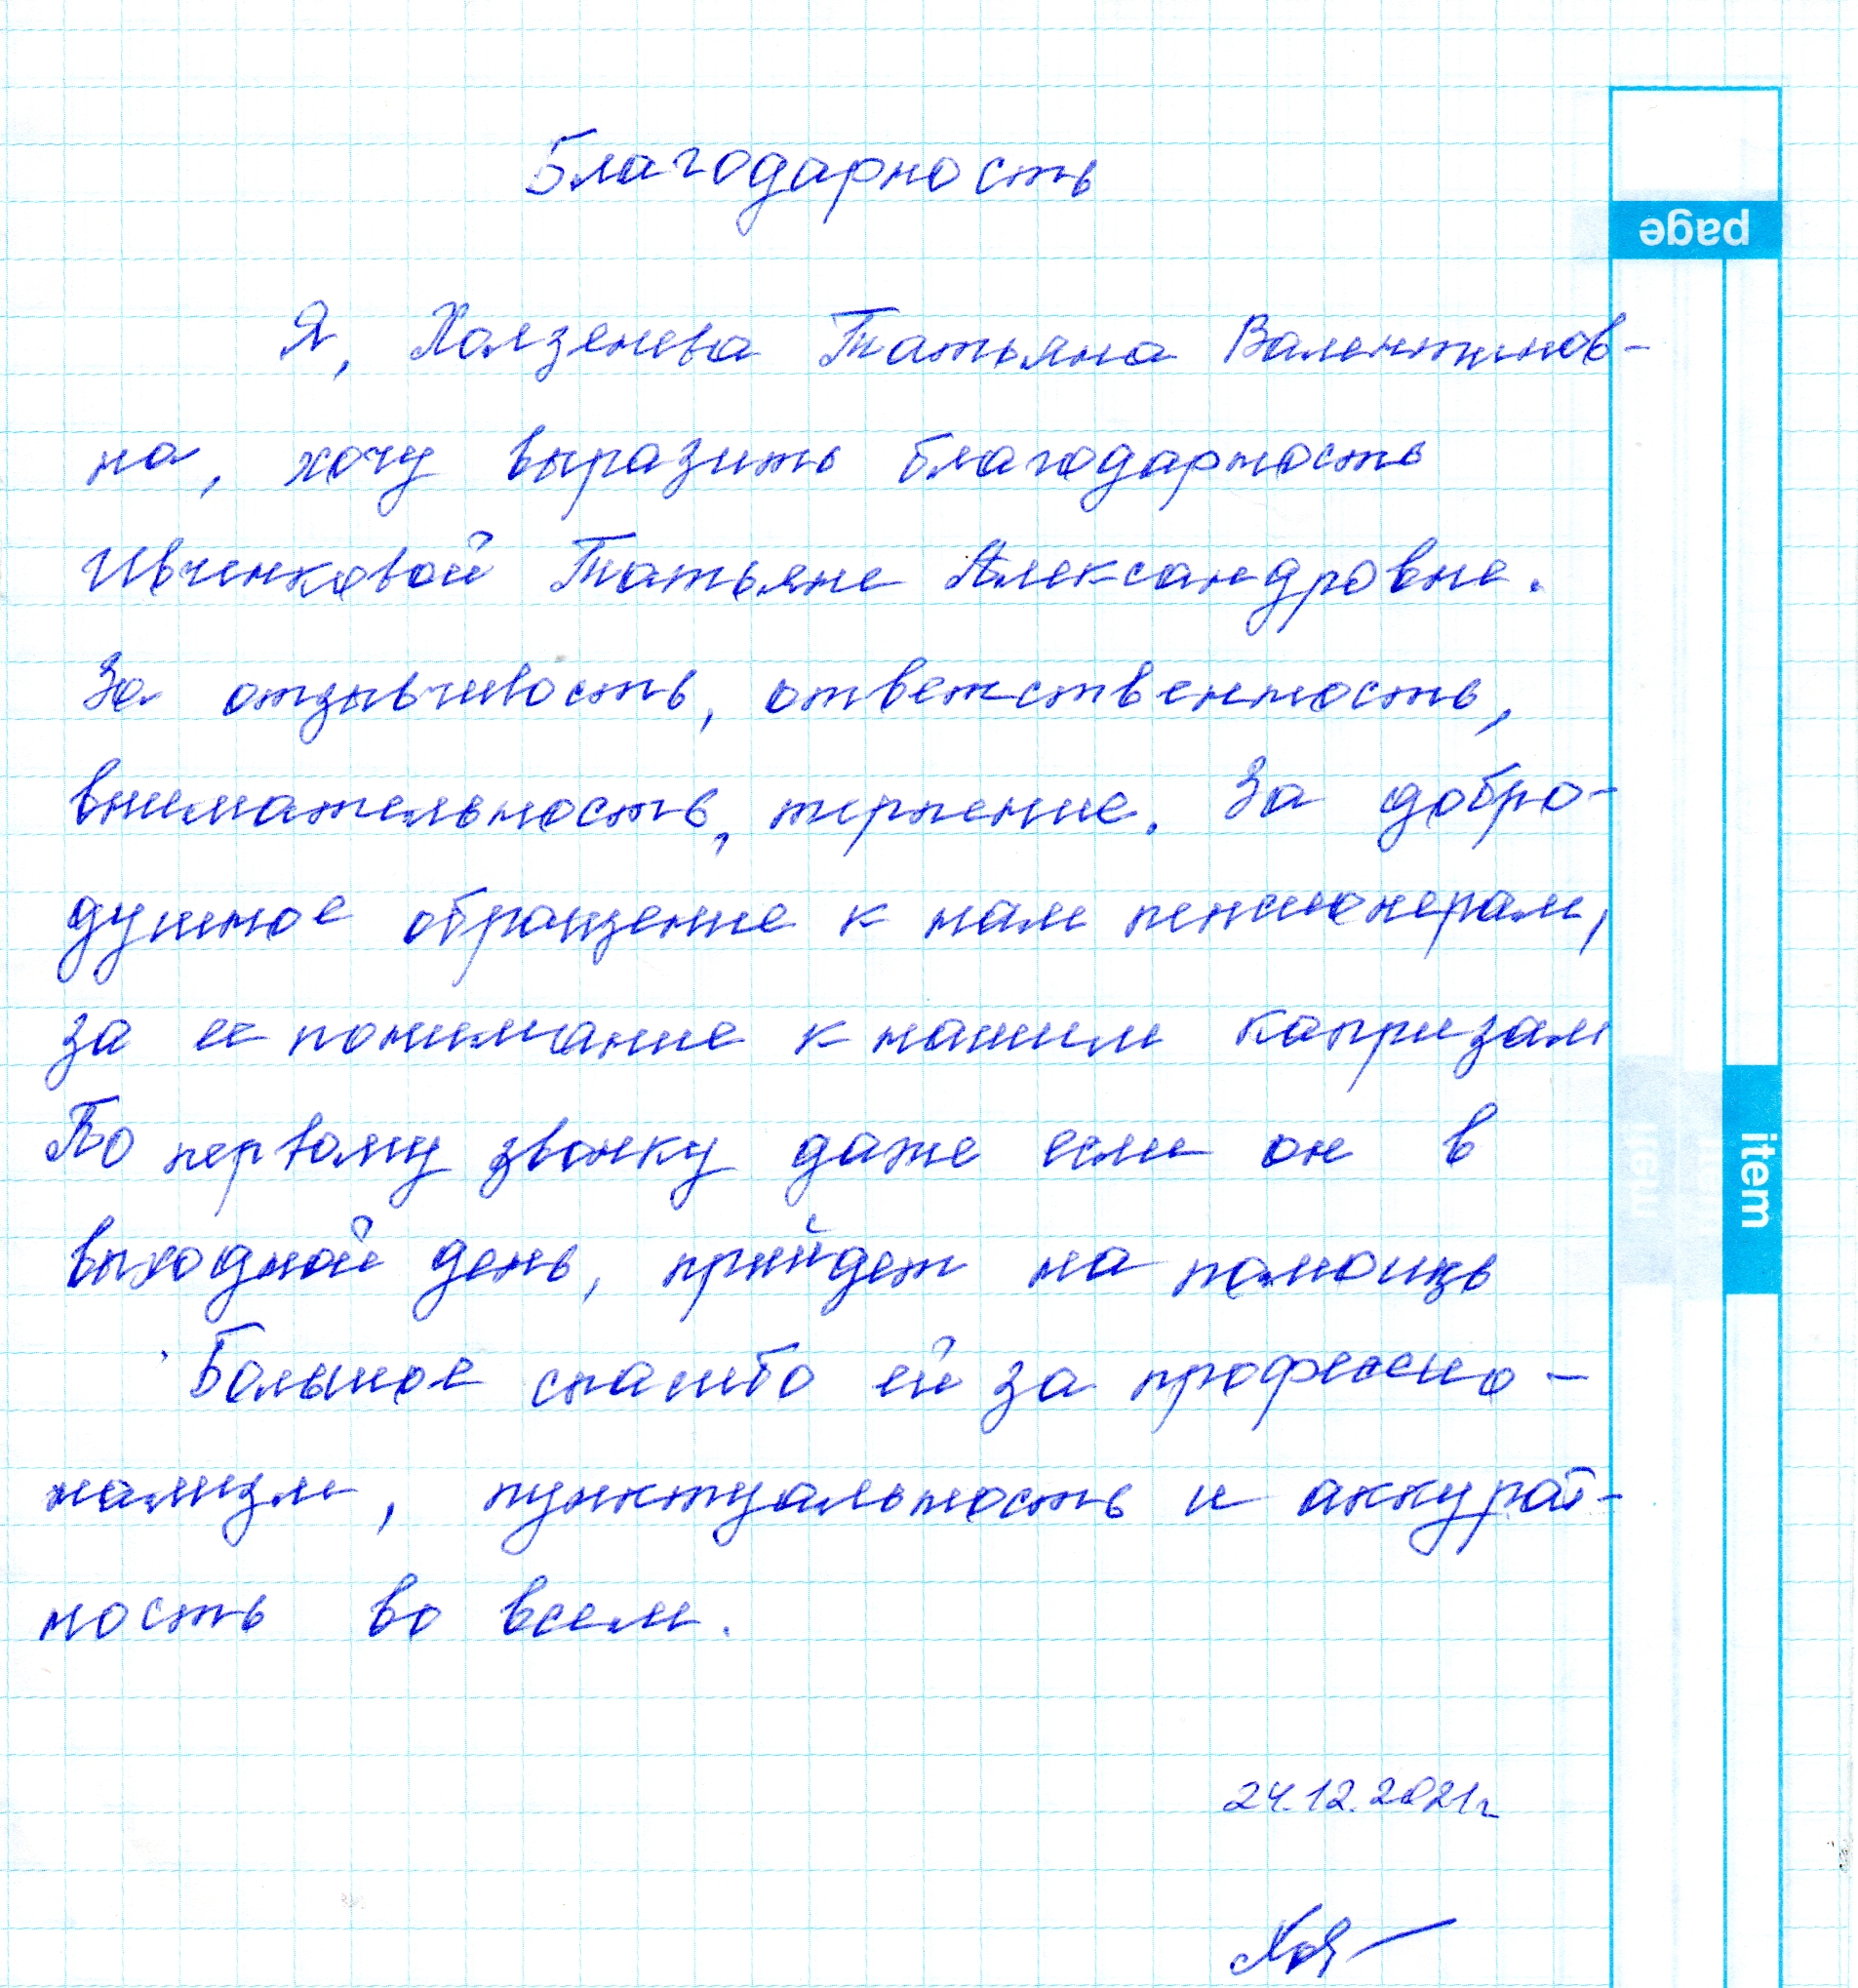 Благодарность
page
Я, Холзенева Татьяна Валентинов-
на, хочу выразить благодарность
Ивченковой Татьяне Александровне.
За отзывчивость, ответственность,
внимательность, терпение. За добро-
душное обращение к нам пенсионерам,
за ее понимание к нашим капризам
По первому звонку даже если он в
item
выходной день, прийдет на помощь
Большое спасибо ей за профессио-
нализм, пунктуальность и аккурат-
ность во всем.
24.12.2021г